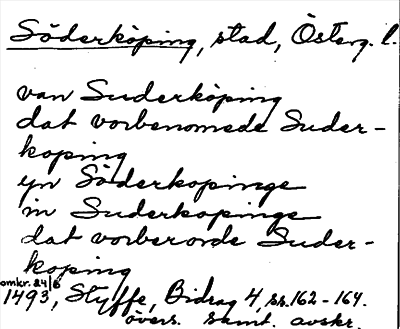 Söderköping, stad, Österg. l.
van Suderköping
dat vorbenomede Suder-
koping
yn Söderkopinge
in Suderkopinge
dat vorberorde Suder-
koping
omkr. 24/6
1493, Styffe, Bidrag 4, ss. 162-164.
övers. samt. avskr.